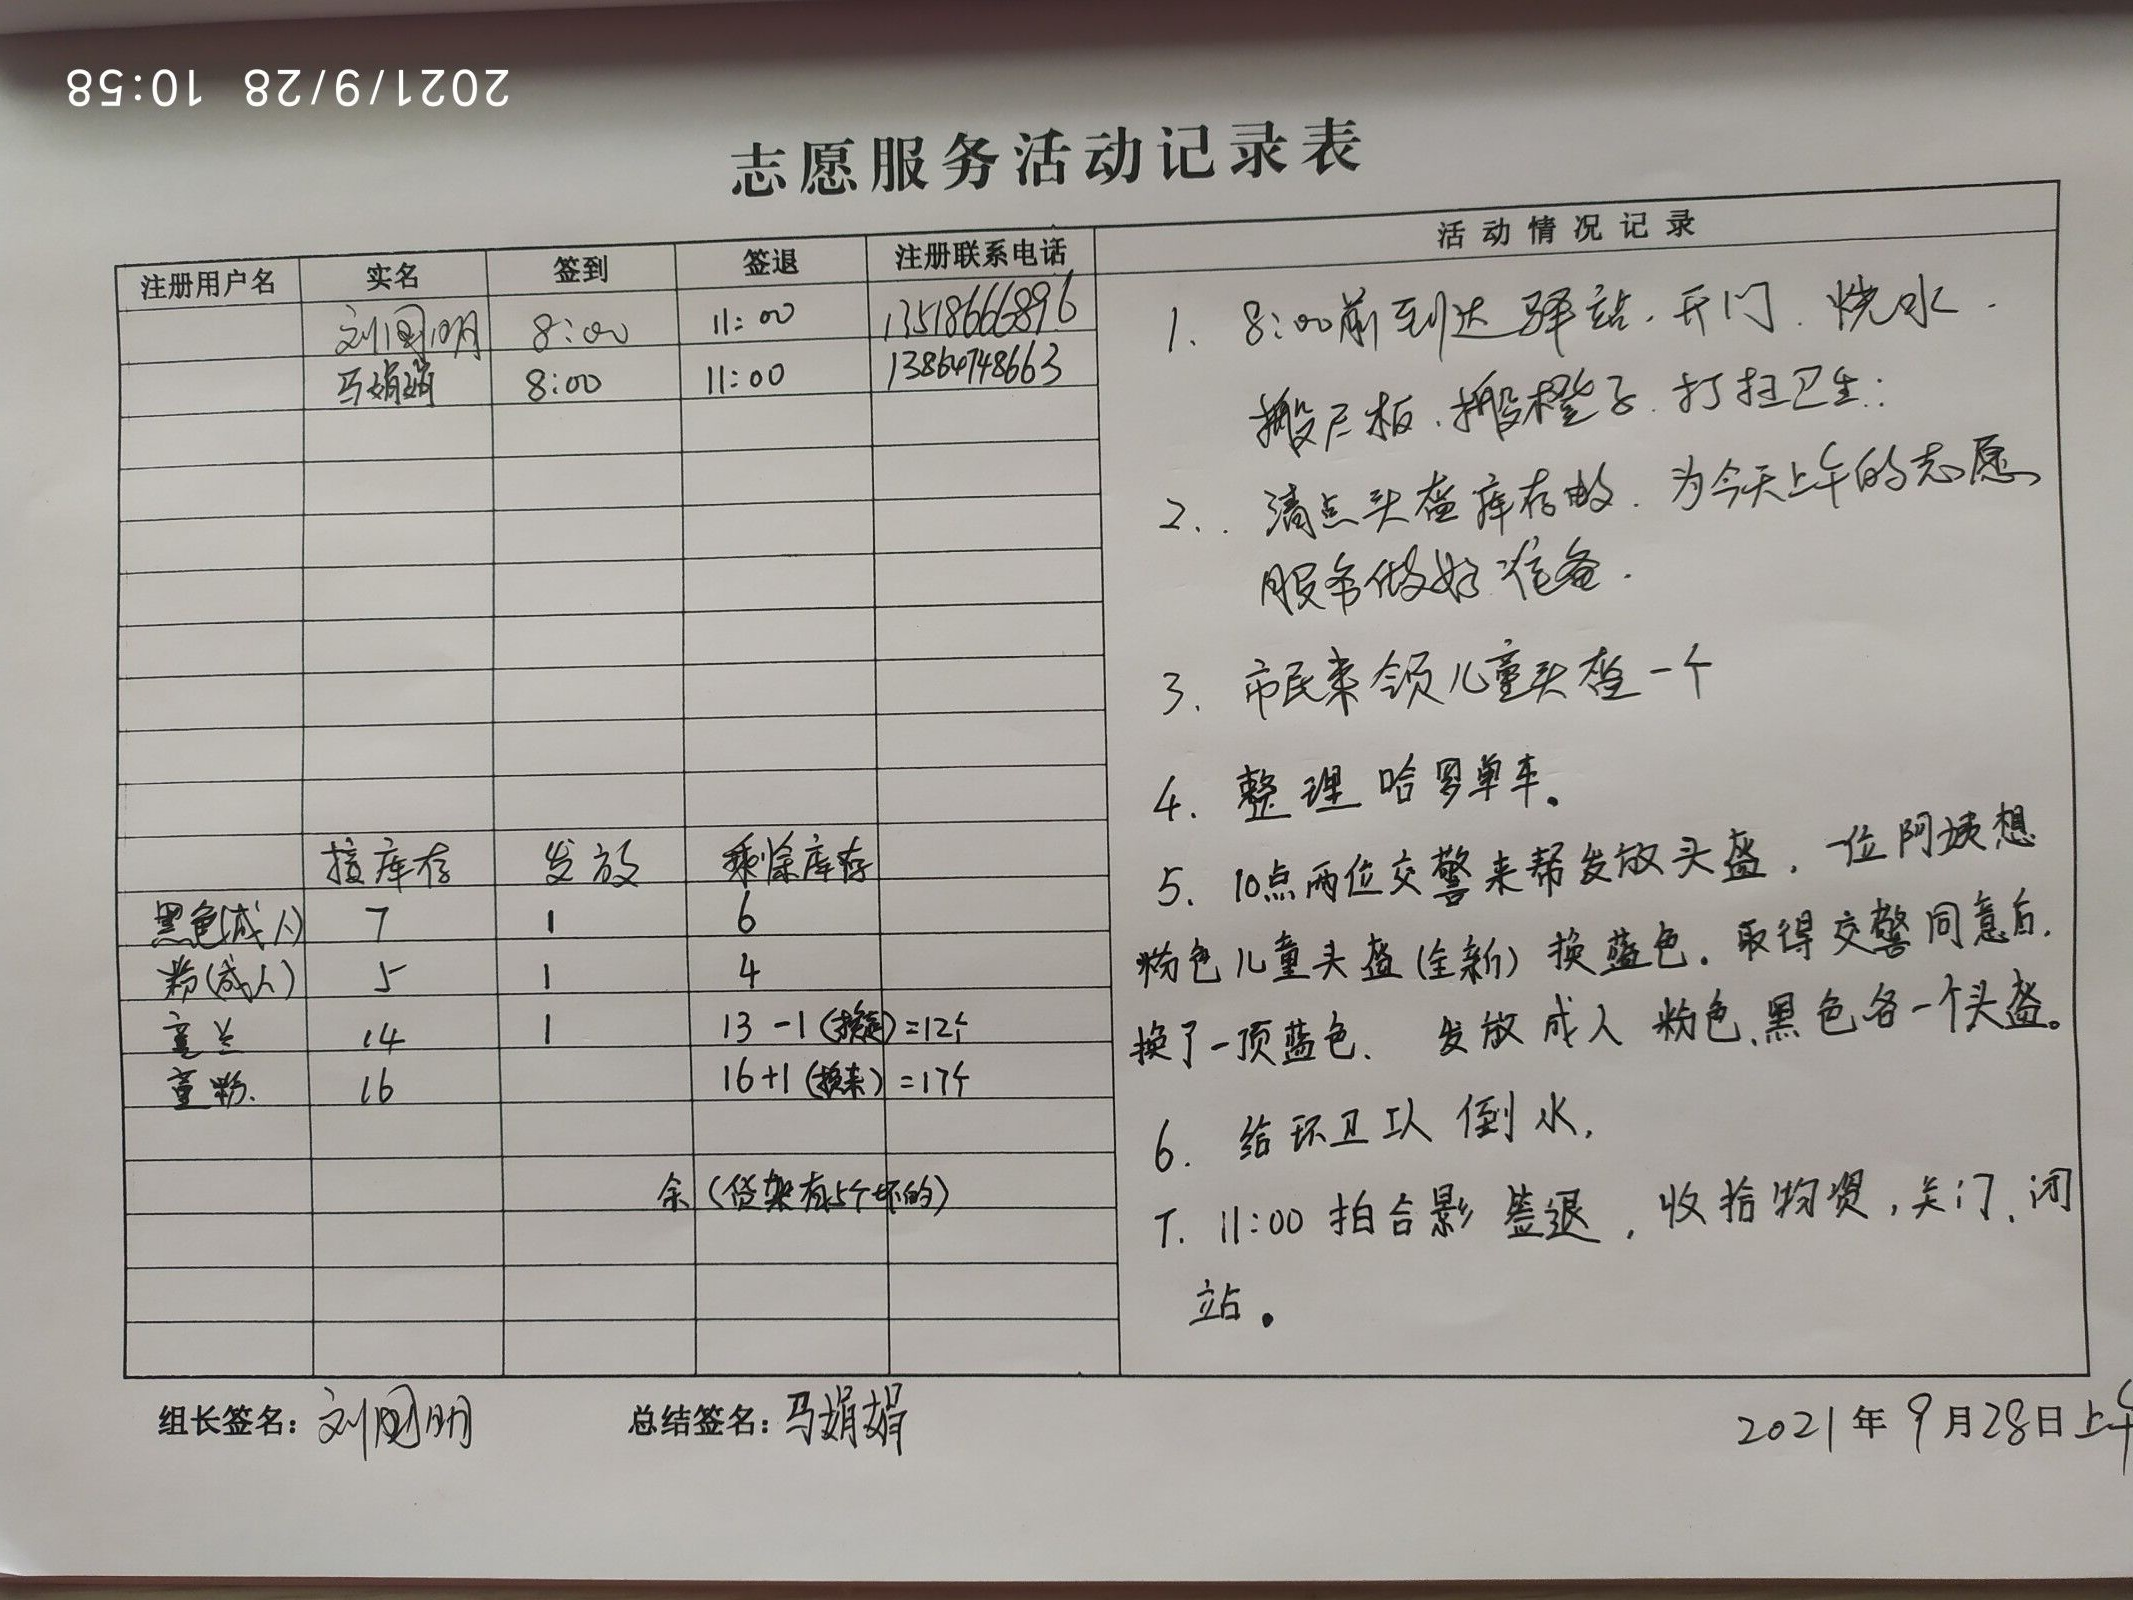 2021/9/28 10:58
志愿服务活动记录表
注册用户名 实名 签到 签退 注册联系电话
刘国明 8:00 11:00 13518666896
马娟娟 8:00 11:00 13864748663
接库存 发放 剩除库存
黑色(成人) 7 1 6
粉(成人) 5 1 4
童兰 14 1 13-1(换走)=12个
童粉. 16 16+1(换来)=17个
余(货架有5个坏的)
活动情况记录
1. 8:00前到达驿站.开门.烧水.
搬展板.搬橙子.打扫卫生:
2.. 清点头盔库存数.为今天上午的志愿
服务做好准备.
3. 市民来领儿童头盔一个
4. 整理哈罗单车。
5. 10点两位交警来帮发放头盔,一位阿姨想
粉色儿童头盔(全新)换蓝色。取得交警同意后.
换了一顶蓝色. 发放成人粉色.黑色各一个头盔。
6. 给环卫工人倒水.
7. 11:00拍合影签退,收拾物资,关门、闭
站。
组长签名:刘国明 总结签名:马娟娟 2021年9月28日上午